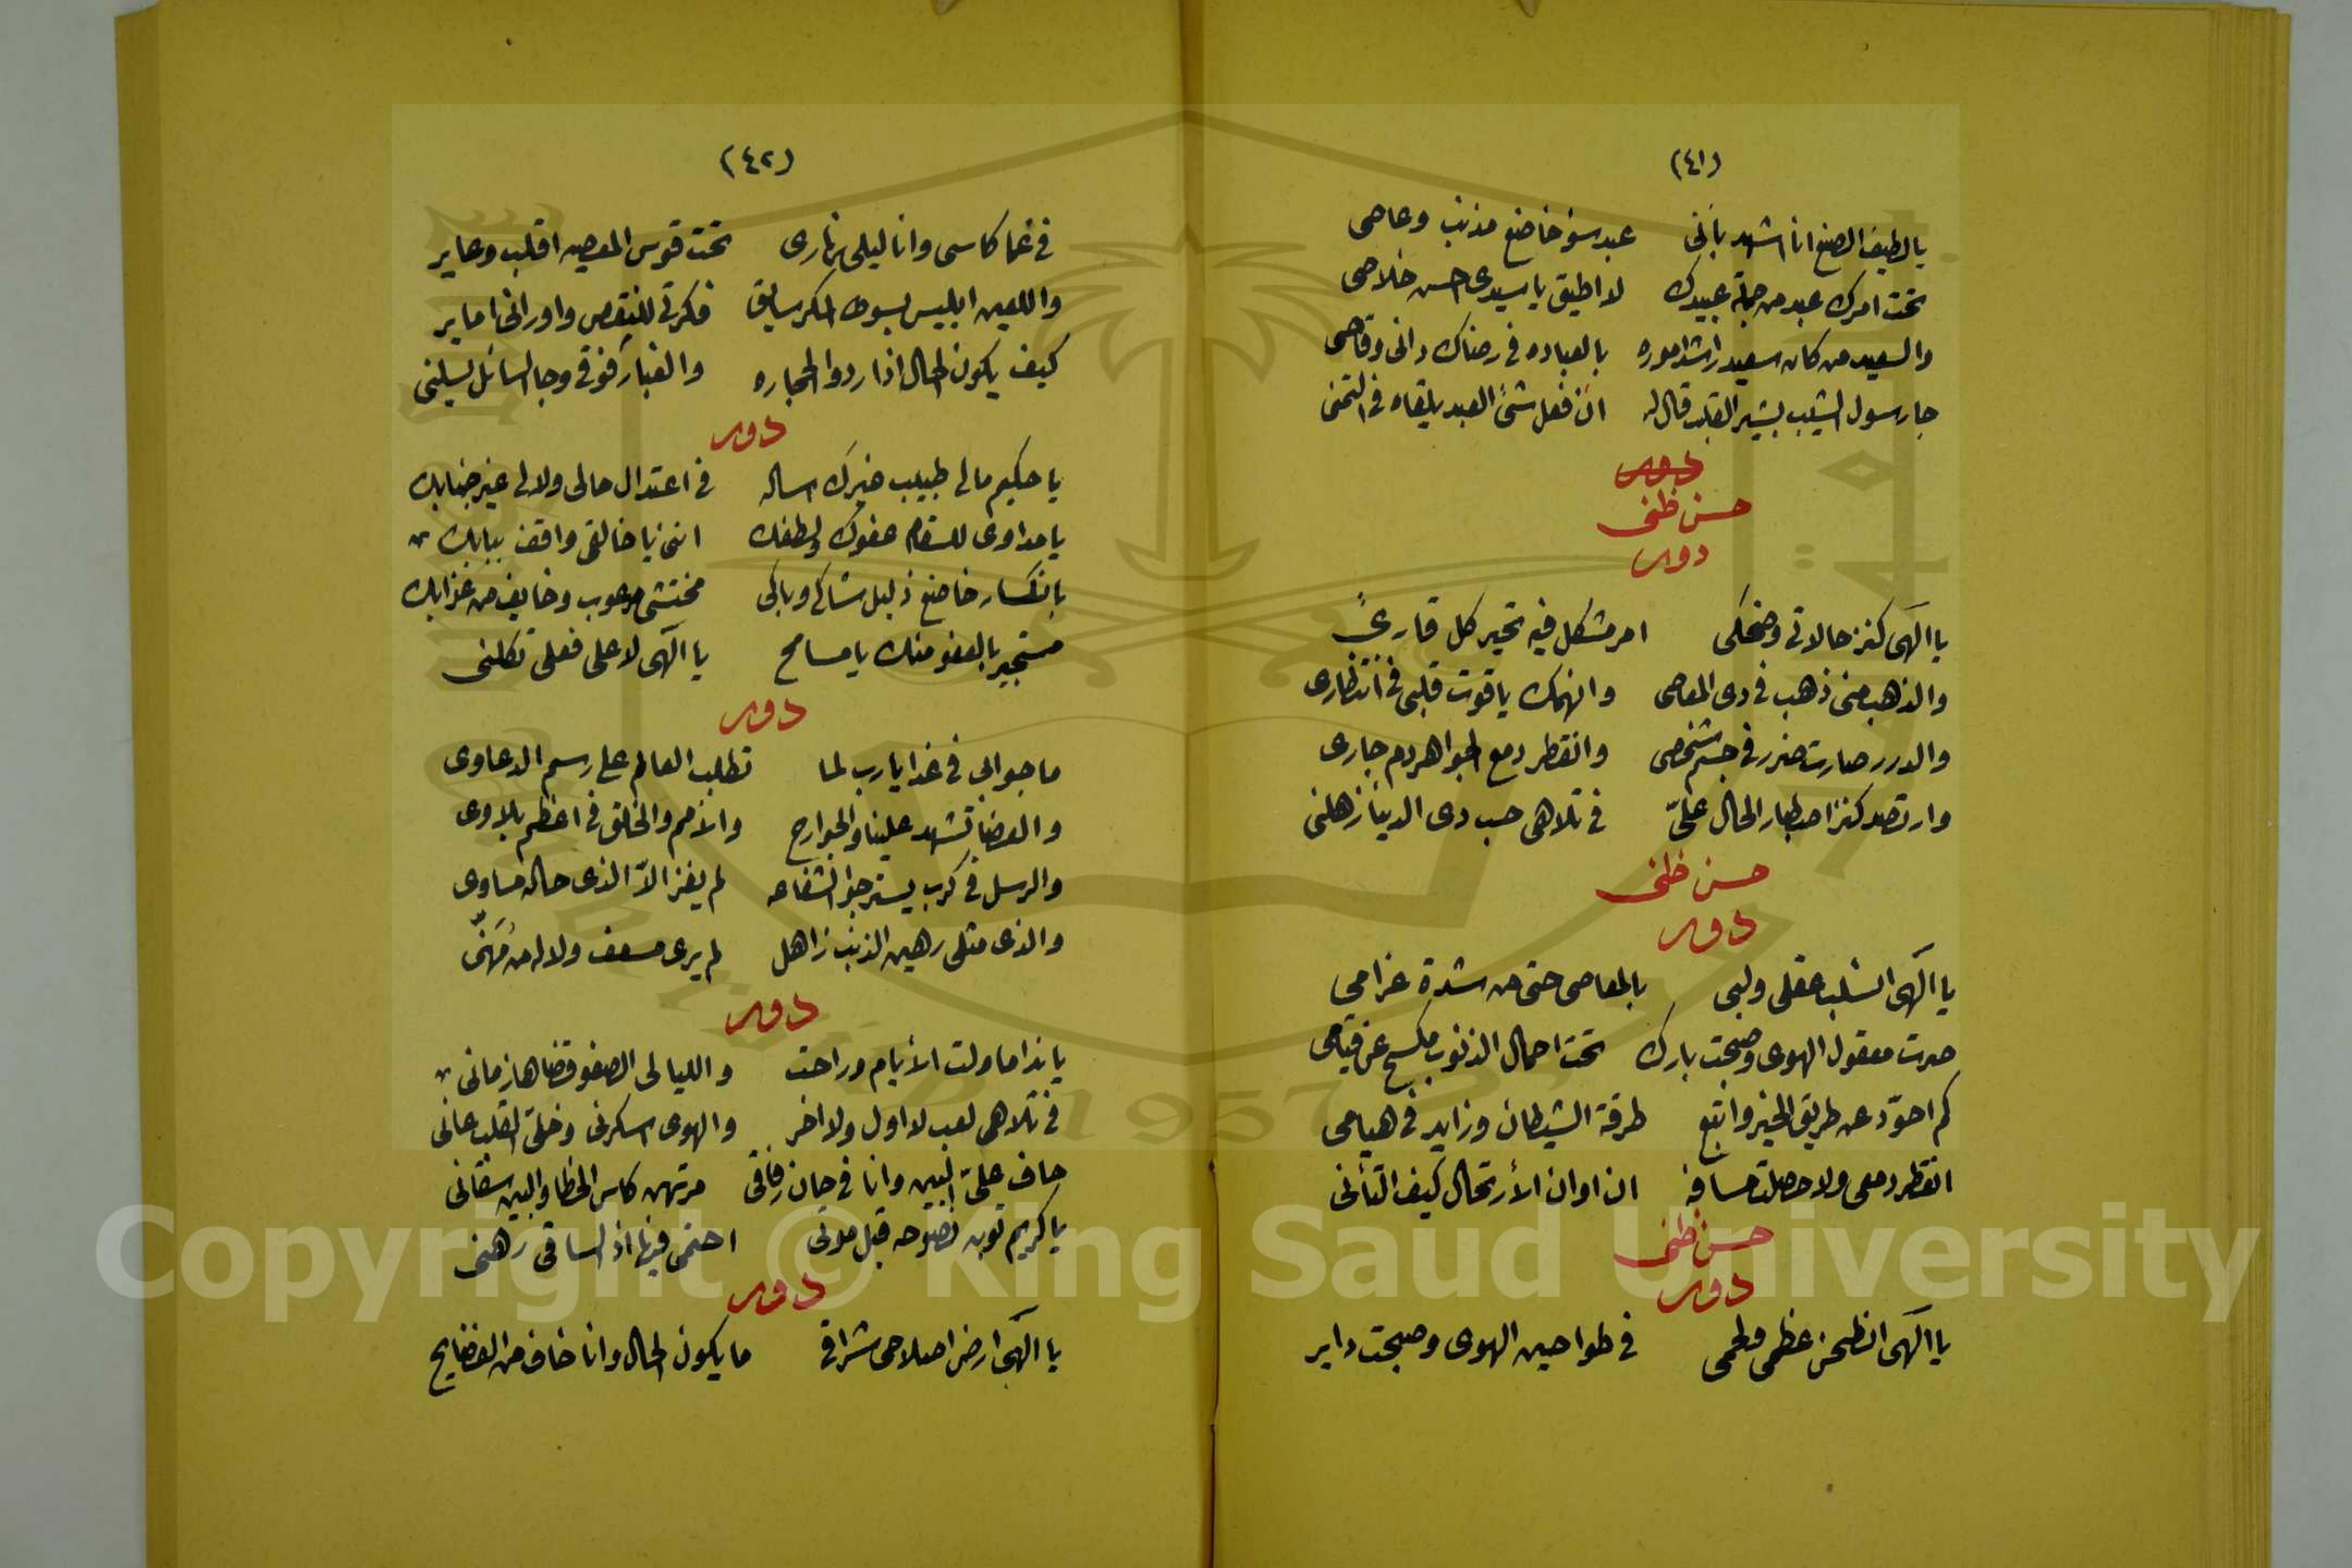 (٤١)
يا لطيف الصنع انا اشهد بأنى عبد سؤ خاضع مذنب وعاصى
تحت امرك عبد من جملة عبيدك لا اطيق يا سيدى احسن خلاصى
والسعيد من كان سعيد راشد اموره بالعباده فى رضاك دانى وقاصى
جا رسول الشيب بشير القلب قال له ان فعل شئ العبد يلقاه فى التمنى
دور
حسن ظنى
دور
يا الهى كنز حالاتى وضحكى امر مشكل فيه تحير كل قارئ
والذهب منى ذهب فى دى المعاصى وانهمك ياقوت قلبى فى انتظارى
والدرر صارت ضرر فى جسم شخصى وانقطر دمع الجواهر دم جارى
وارتصد كنز اصطبار الحال علىّ فى تلاهى حب دى الدنيا زهلنى
حسن ظنى
دور
يا الهى انسلب عقلى ولبى بالمعاصى حتى من شدة غرامى
صرت معقول الهوى وصبحت بارك تحت احمال الذنوب مكسح عن قيامى
كم احوّد عن طريق الخير واتبع طرقة الشيطان وزايد فى هيامى
انقطر دمعى ولا حصلت مسافه ان اوان الأرتحال كيف التأنى
حسن ظنى
دور
يا الهى انطحن عظمى ولحمى فى طواحين الهوى وصبحت داير
(٤٢)
فى غما كاسى وانا ليلى نهارى تحت قوس المعصيه اقلب وعاير
واللعين ابليس بسوط المكر سايق فكرتى للنقص واورانى اماير
كيف يكون الحال اذا ردوا الحجاره والغبار فوقى وجا السائل يسلنى
دور
يا حكيم مالى طبيب غيرك اساله فى اعتدال حالى ولالى غير جنابك
يا مداوى للسقام عفوك ولطفك اننى يا خالقى واقف ببابك
بانكسار خاضع ذليل شاكى وباكى مختشى مرعوب وخايف من عذابك
مستجير بالعفو منك يا مسامح يا الهى لا على فعلى تكلنى
دور
ما جوابى فى غدا يا رب لما تطلب العالم على رسم الدعاوى
والعضا تشهد علينا والجوارح والأمم والخلق فى اعظم بلاوى
والرسل فى كرب يسترجوا الشفاعه لم يفز الاّ الذى حاله مساوى
والذى مثلى رهين الذنب زاهل لم يرى مسعف ولا له من مُهَنّى
دور
يا ندا ما ولت الأيام وراحت والليالى الصفو قضاها زمانى
فى تلاهى لعب لا اول ولا اخر والهوى اسكرنى وخلىّ القلب عانى
حاف علىّ البين وانا فى حان رفاقى مرتهن كاس الخطا والبين سقانى
يا كريم توبه نصوحه قبل موتى احتمى فيها اذ الساقى رهنى
دور
يا الهى ارض اصلاحى شرافى ما يكون الحال وانا خاف من الفضايح
Copyright © King Saud University
1957